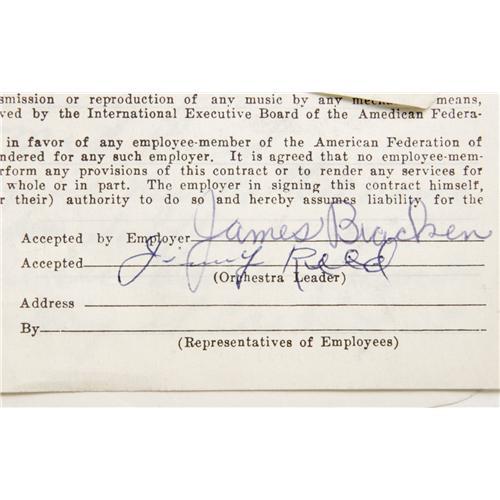 smission or reproduction of any music by any mechanical means,
ved by the International Executive Board of the Amedican Federa-
in favor of any employee-member of the American Federation of
ndered for any such employer. It is agreed that no employee-mem-
erform any provisions of this contract or to render any services for
whole or in part. The employer in signing this contract himself,
r their) authority to do so and hereby assumes liability for the
Accepted by Employer James Bracken
Accepted Jimmy Reed
(Orchestra Leader)
Address
By
(Representatives of Employees)